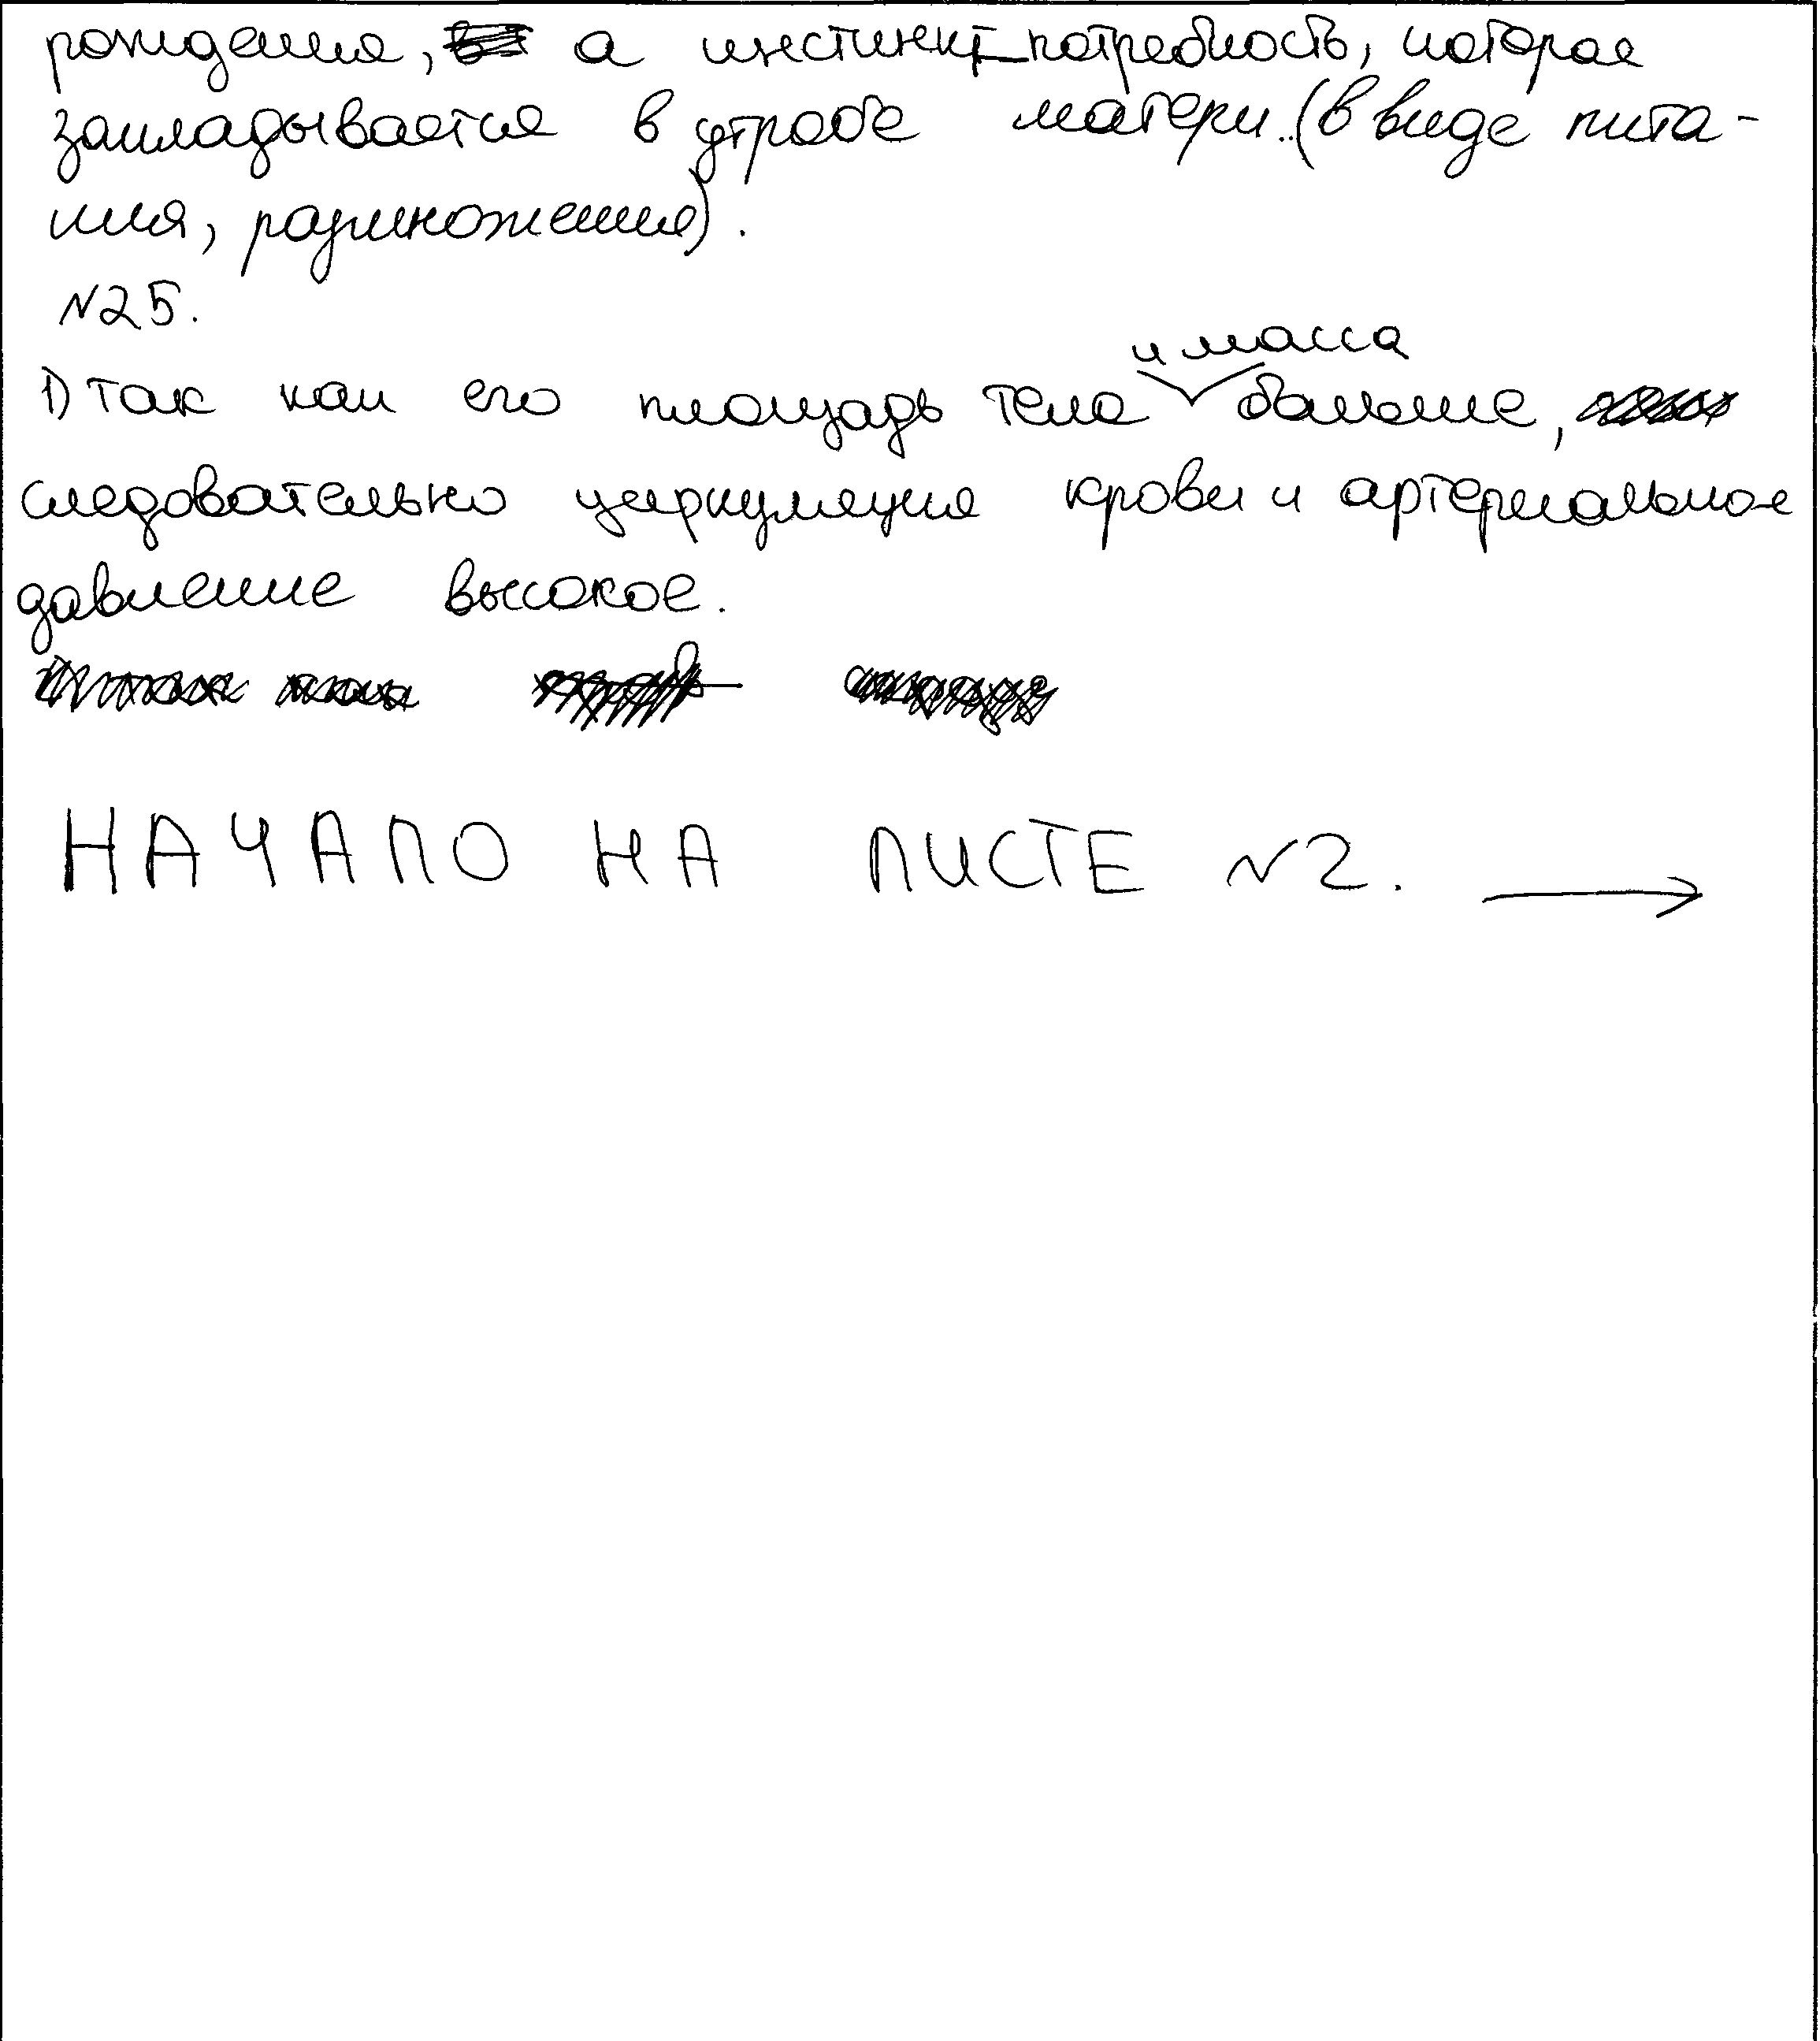 рождения, а инстинкт–потребность, которая
закладывается в утробе матери.. (в виде пита-
ния, размножения).
№25.
1) Так как его площадь тела и масса больше,
следовательно циркуляция крови и артериальное
давление высокое.
НАЧАЛО НА ЛИСТЕ №2. →